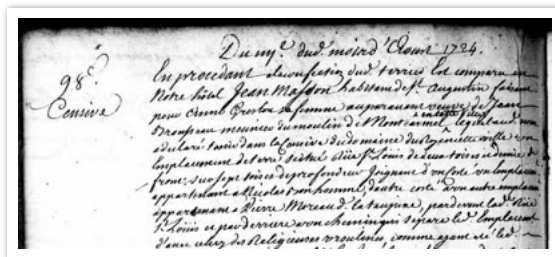 Du my.e dud. mois d'Aoust 1724.
98.e
Censive
En procedant à la confection dud. terrier Est comparu en
Notre hôtel Jean Masson habitant de St. Augustin faisant
pour Anne Greslon sa femme auparavant veuve de Jean
Brousseau meunier du moulin de Montcarmel, lequel aud. nom
a declaré tenir dans la Censive du domaine du Roy en cette ville un
Emplacement de terre scitué rüe St. Louis de deux toises et demie de
front, sur sept toises de profondeur Joignant d'un costé un Emplacem.t
appartenant a Nicolas Bonhomme, d'autre costé a un autre emplacem.t
appartenant a Pierre Moreau de la taupine, pardevant lad. Rüe
St. Loüis et par derriere a un chemin qui separe led. Emplacem.t
d'avec celuy des Religieuses ursulines, comme ayant eté led.